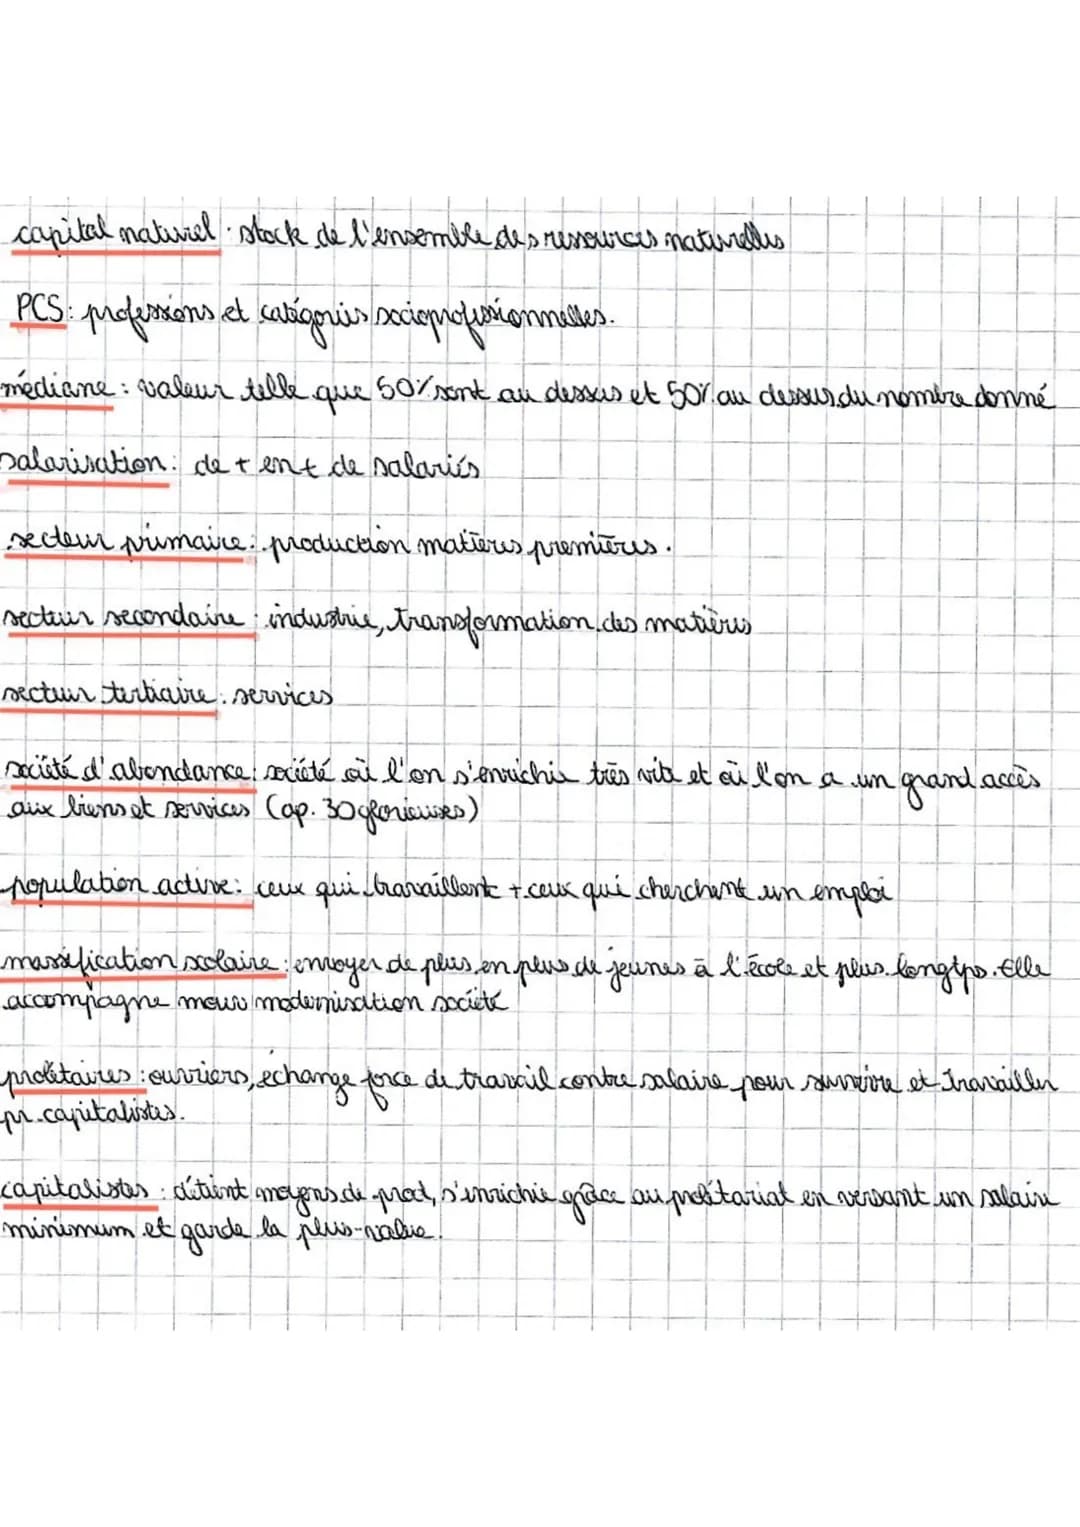 capital naturel : stock de l'ensemble des ressources naturelles
PCS : professions et catégories socioprofessionnelles.
médiane : valeur telle que 50% sont au dessus et 50% au dessus du nombre donné
salarisation : de + en + de salariés
secteur primaire : production matières premières.
secteur secondaire : industrie, transformation des matières
secteur tertiaire : services
société d'abondance : société où l'on s'enrichie très vite et où l'on a un grand accès
aux biens et services (ap. 30 glorieuses)
population active : ceux qui travaillent + ceux qui cherchent un emploi
massification scolaire : envoyer de plus en plus de jeunes à l'école et plus longtps. Elle
accompagne mouv modernisation société
prolétaires : ouvriers, échange force de travail contre salaire pour survivre et travailler
pr capitalistes.
capitalistes : détient moyens de prod, s'enrichie grâce au prolétariat en versant un salaire
minimum et garde la plus-value.